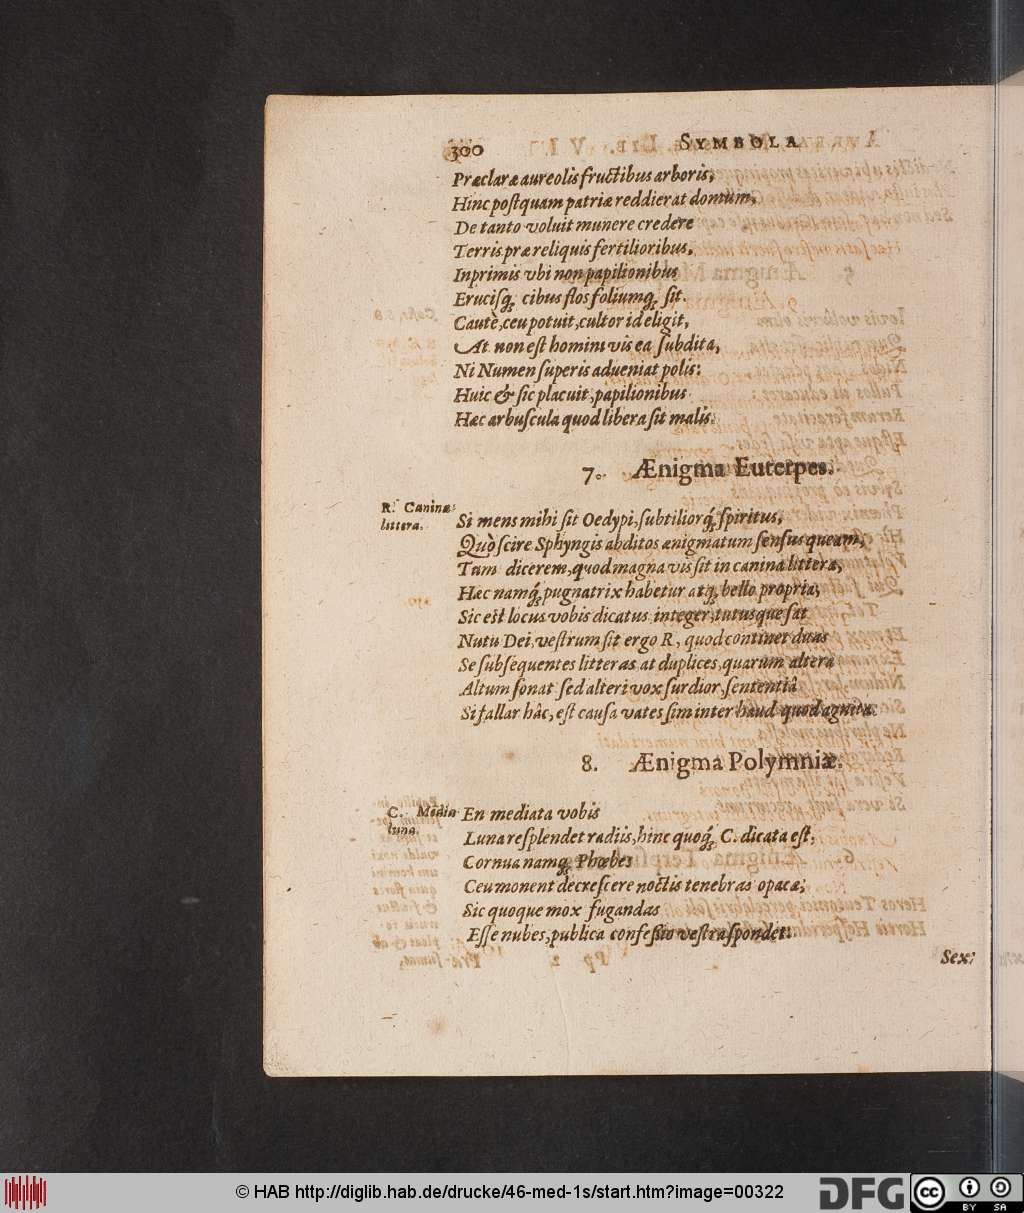 300 SYMBOLA
Præclaræ aureolis fructibus arboris,
Hinc postquam patriæ reddierat domum,
De tanto voluit munere credere
Terris præ reliquis fertilioribus,
Inprimis vbi non papilionibus
Erucisq; cibus flos foliumq; sit.
Cautè, ceu potuit, cultor id eligit,
At non est homini vis ea subdita,
Ni Numen superis adueniat polis:
Huic & sic placuit, papilionibus
Hæc arbuscula quod libera sit malis.
7. Ænigma Euterpes.
R. Caninæ
littera.
Si mens mihi sit Oedypi, subtiliorq; spiritus,
Quò scire Sphyngis abditos ænigmatum sensus queam,
Tum dicerem, quod magna vis sit in canina littera,
Hæc namq; pugnatrix habetur atq; bello propria;
Sic est locus vobis dicatus integer, tutusque sat
Nutu Dei, vestrum sit ergo R, quod continet duas
Se subsequentes litteras at duplices, quarum altera
Altum sonat sed alteri vox surdior, sententiâ
Si fallar hâc, est causa vates sim inter haud quod agnita.
8. Ænigma Polymniæ.
C. Media
luna.
En mediata vobis
Luna resplendet radiis, hinc quoq; C. dicata est,
Cornua namq; Phœbes
Ceu monent decrescere noctis tenebras opacæ;
Sic quoque mox fugandas
Esse nubes, publica confessio vestra spondet:
Sex:
© HAB http://diglib.hab.de/drucke/46-med-1s/start.htm?image=00322
DFG
cc BY SA